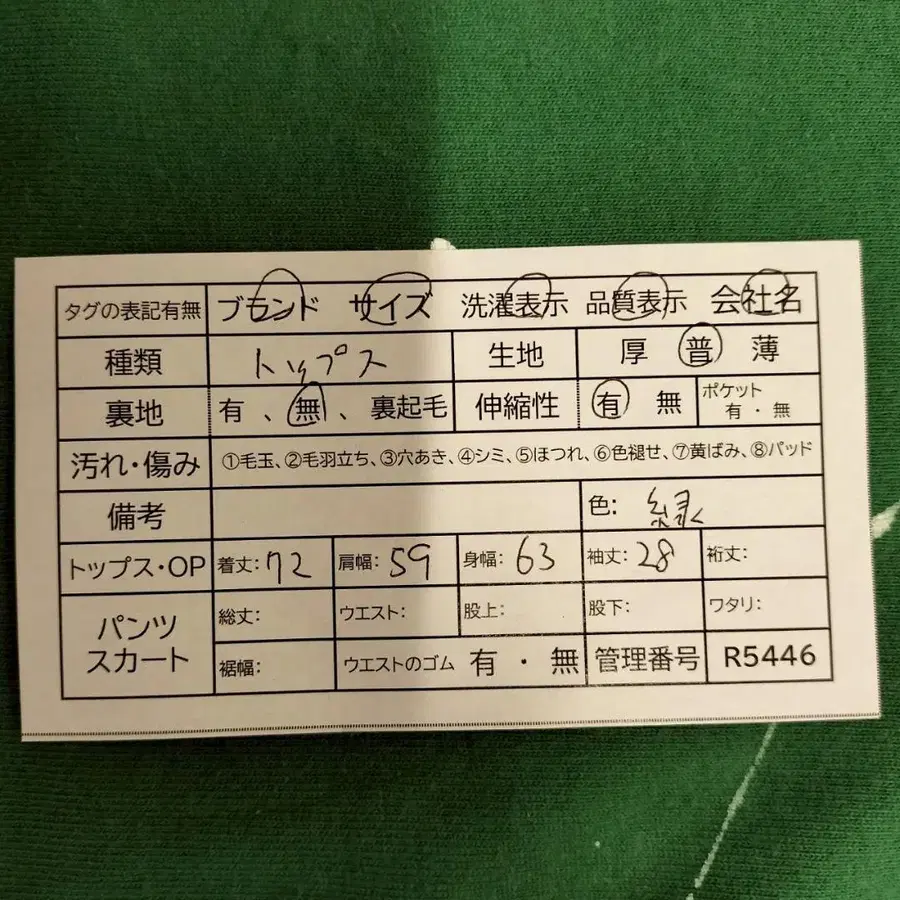 タグの表記有無 ブランド サイズ 洗濯表示 品質表示 会社名
種類 トップス 生地 厚 普 薄
裏地 有 、 無 、 裏起毛 伸縮性 有 無 ポケット 有 ・ 無
汚れ・傷み ①毛玉、②毛羽立ち、③穴あき、④シミ、⑤ほつれ、⑥色褪せ、⑦黄ばみ、⑧パッド
備考 色: 緑
トップス・OP 着丈: 72 肩幅: 59 身幅: 63 袖丈: 28 裄丈:
パンツ スカート 総丈: ウエスト: 股上: 股下: ワタリ:
裾幅: ウエストのゴム 有 ・ 無 管理番号 R5446